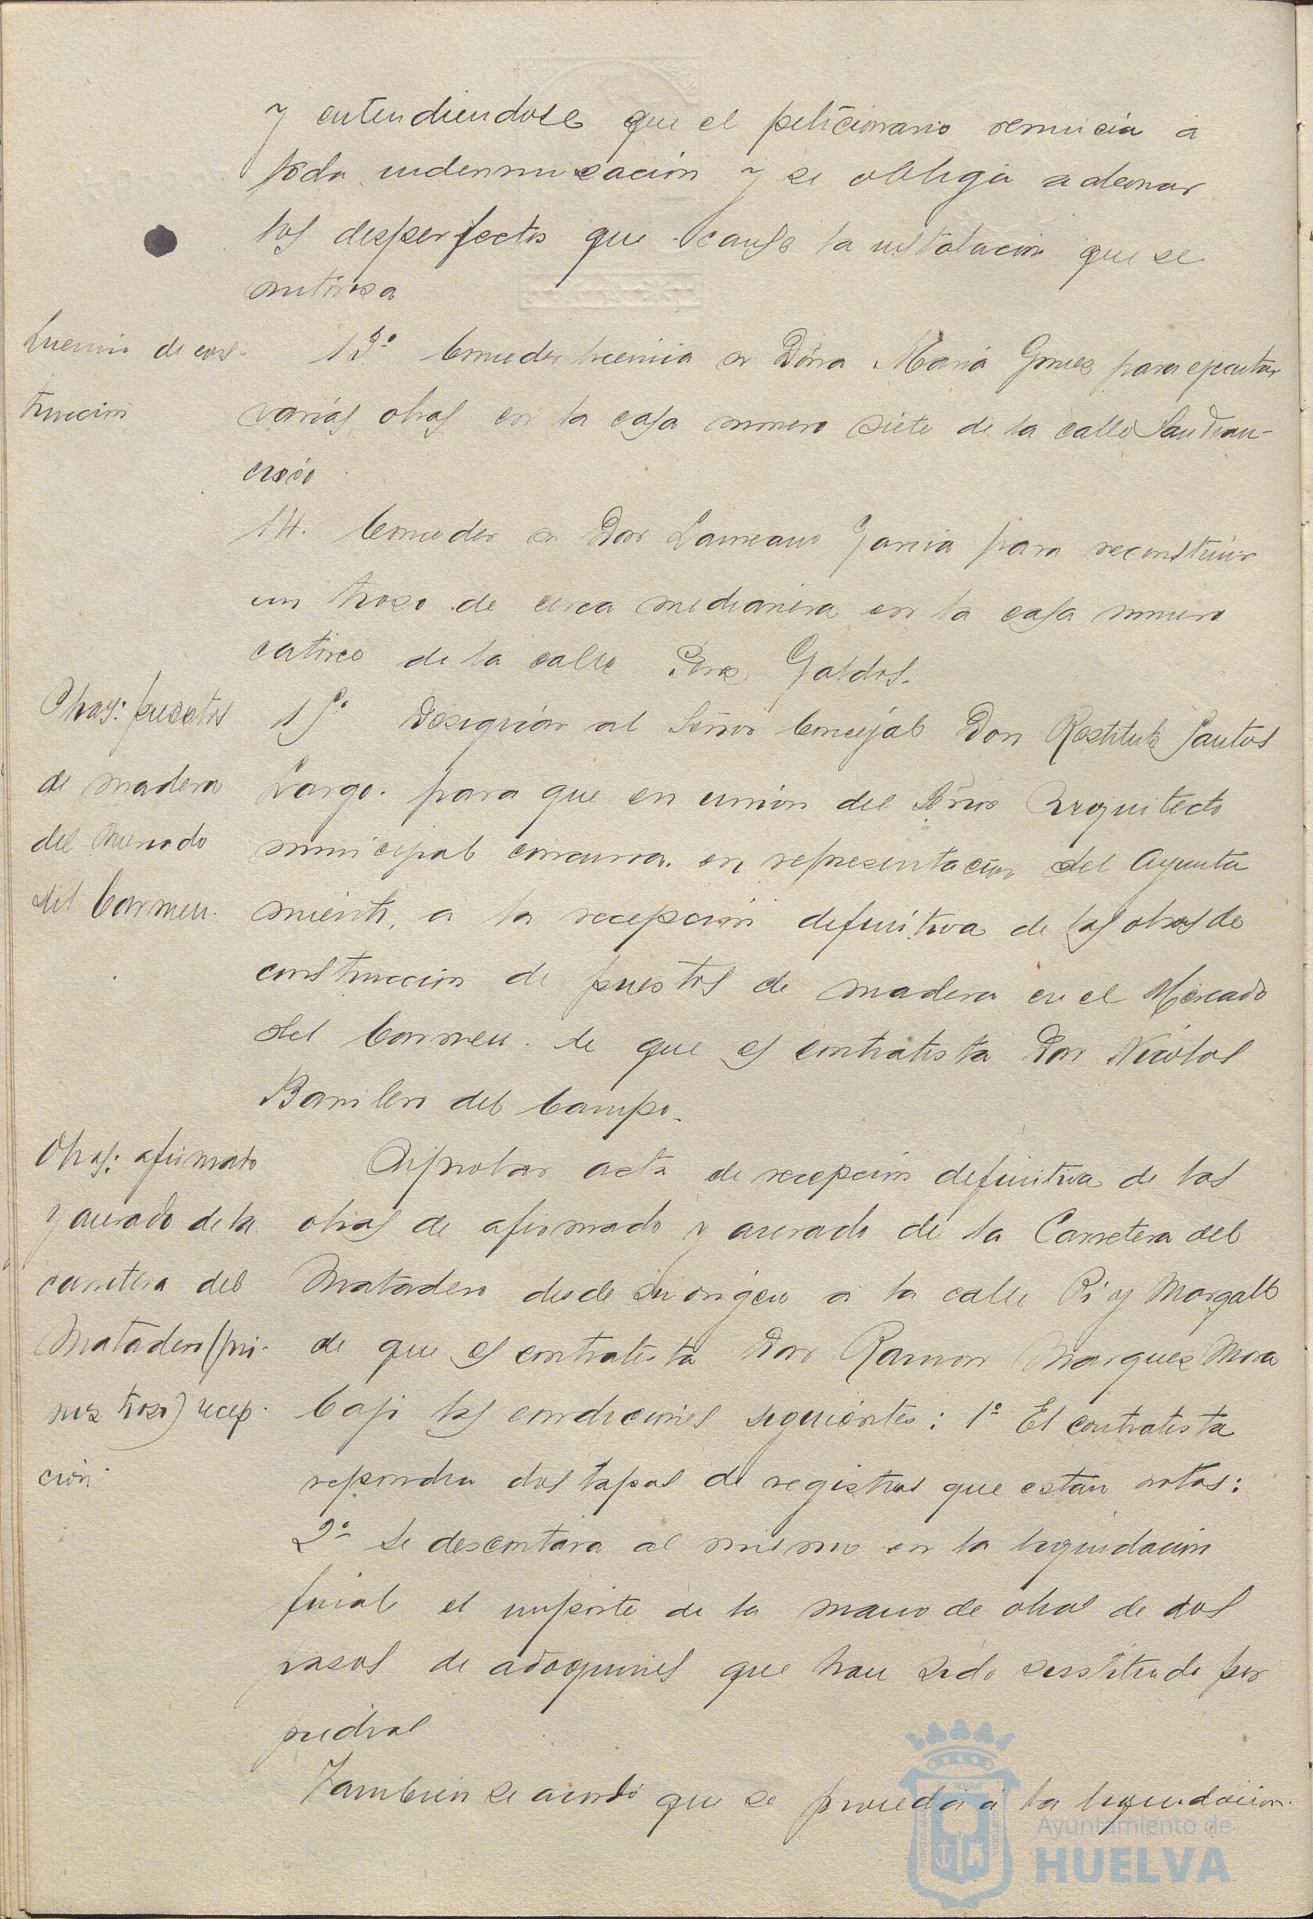 y entendiendose que el peticionario renuncia a
toda indemnización y se obliga a abonar
los desperfectos que cause la instalación que se
autoriza
Licencia de cons-
trucción
13º Conceder licencia a Doña Maria Gomez para ejecutar
varias obras en la casa numero siete de la calle San Fran-
cisco
14. Conceder a Don Laureano Garcia para reconstruir
un trozo de cerca medianera en la casa numero
catorce de la calle Perez Galdos.
Obras: puestos
de madera
del Mercado
del Carmen.
15º Designar al Señor Concejal Don Restituto Santos
Largo. para que en union del Señor Arquitecto
municipal concurra. en representacion del Ayunta
miento, a la recepción definitiva de las obras de
construccion de puestos de madera en el Mercado
del Carmen. de que es contratista Don Nicolas
del Campo.
Obras: afirmado
y acerado de la
carretera del
Matadero (pri-
mer trozo) recep-
ción.
Aprobar acta de recepción definitiva de las
obras de afirmado y acerado de la Carretera del
Matadero desde su origen a la calle Pi y Margall
de que es contratista Don Ramon Marquez Mora
bajo las condiciones siguientes: 1º El contratista
repondra dos tapas de registros que estan rotas:
2º Se descontara al mismo en la liquidacion
final el importe de la mano de obra de dos
pasos de adoquines que han sido sustituido por
piedras
Tambien se acordó que se proceda a la liquidacion.
Ayuntamiento de
HUELVA